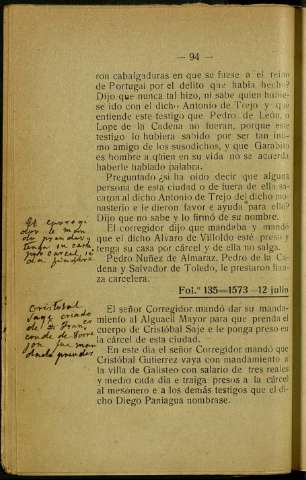 — 94 —
ron cabalgaduras en que se fuese a el reino
de Portugal por el delito que había hecho?
Dijo que nunca tal hizo, ni sabe quien hubie-
se ido con el dicho Antonio de Trejo y que
entiende este testigo que Pedro de León, o
Lope de la Cadena no fueran, porque este
testigo lo hubiera sabido por ser tan ínti-
mo amigo de los susodichos, y que Garabito
es hombre a quien en su vida no se acuerda
haberle hablado palabra.
Preguntado ¿si ha oido decir que alguna
persona de esta ciudad o de fuera de ella sa-
caron al dicho Antonio de Trejo del dicho mo-
nasterio e le dieron favor e ayuda para ella?
Dijo que no sabe y lo firmó de su nombre.
El corregidor dijo que mandaba y mandó
que el dicho Alvaro de Villoldo esté preso y
tenga su casa por cárcel y de ella no salga.
Pedro Nuñez de Almaraz, Pedro de la Ca-
dena y Salvador de Toledo, le prestaron fian-
za carcelera.
El corregi
dor le man
da prender
su casa
por carcel, si
da fianzas
Fol.º 135—1573—12 julio
El señor Corregidor mandó dar su manda-
miento al Alguacil Mayor para que prenda el
cuerpo de Cristóbal Saje e le ponga preso en
la cárcel de esta ciudad.
En este día el señor Corregidor mandó que
Cristóbal Gutierrez vaya con mandamiento a
la villa de Galisteo con salario de tres reales
y medio cada día e traiga presos a la cárcel
al mesonero e a los demás testigos que el di-
cho Diego Paniagua nombrase.
Cristobal
Saje criado
de D. Fran
conde de Torre
jon fue man
dado prender